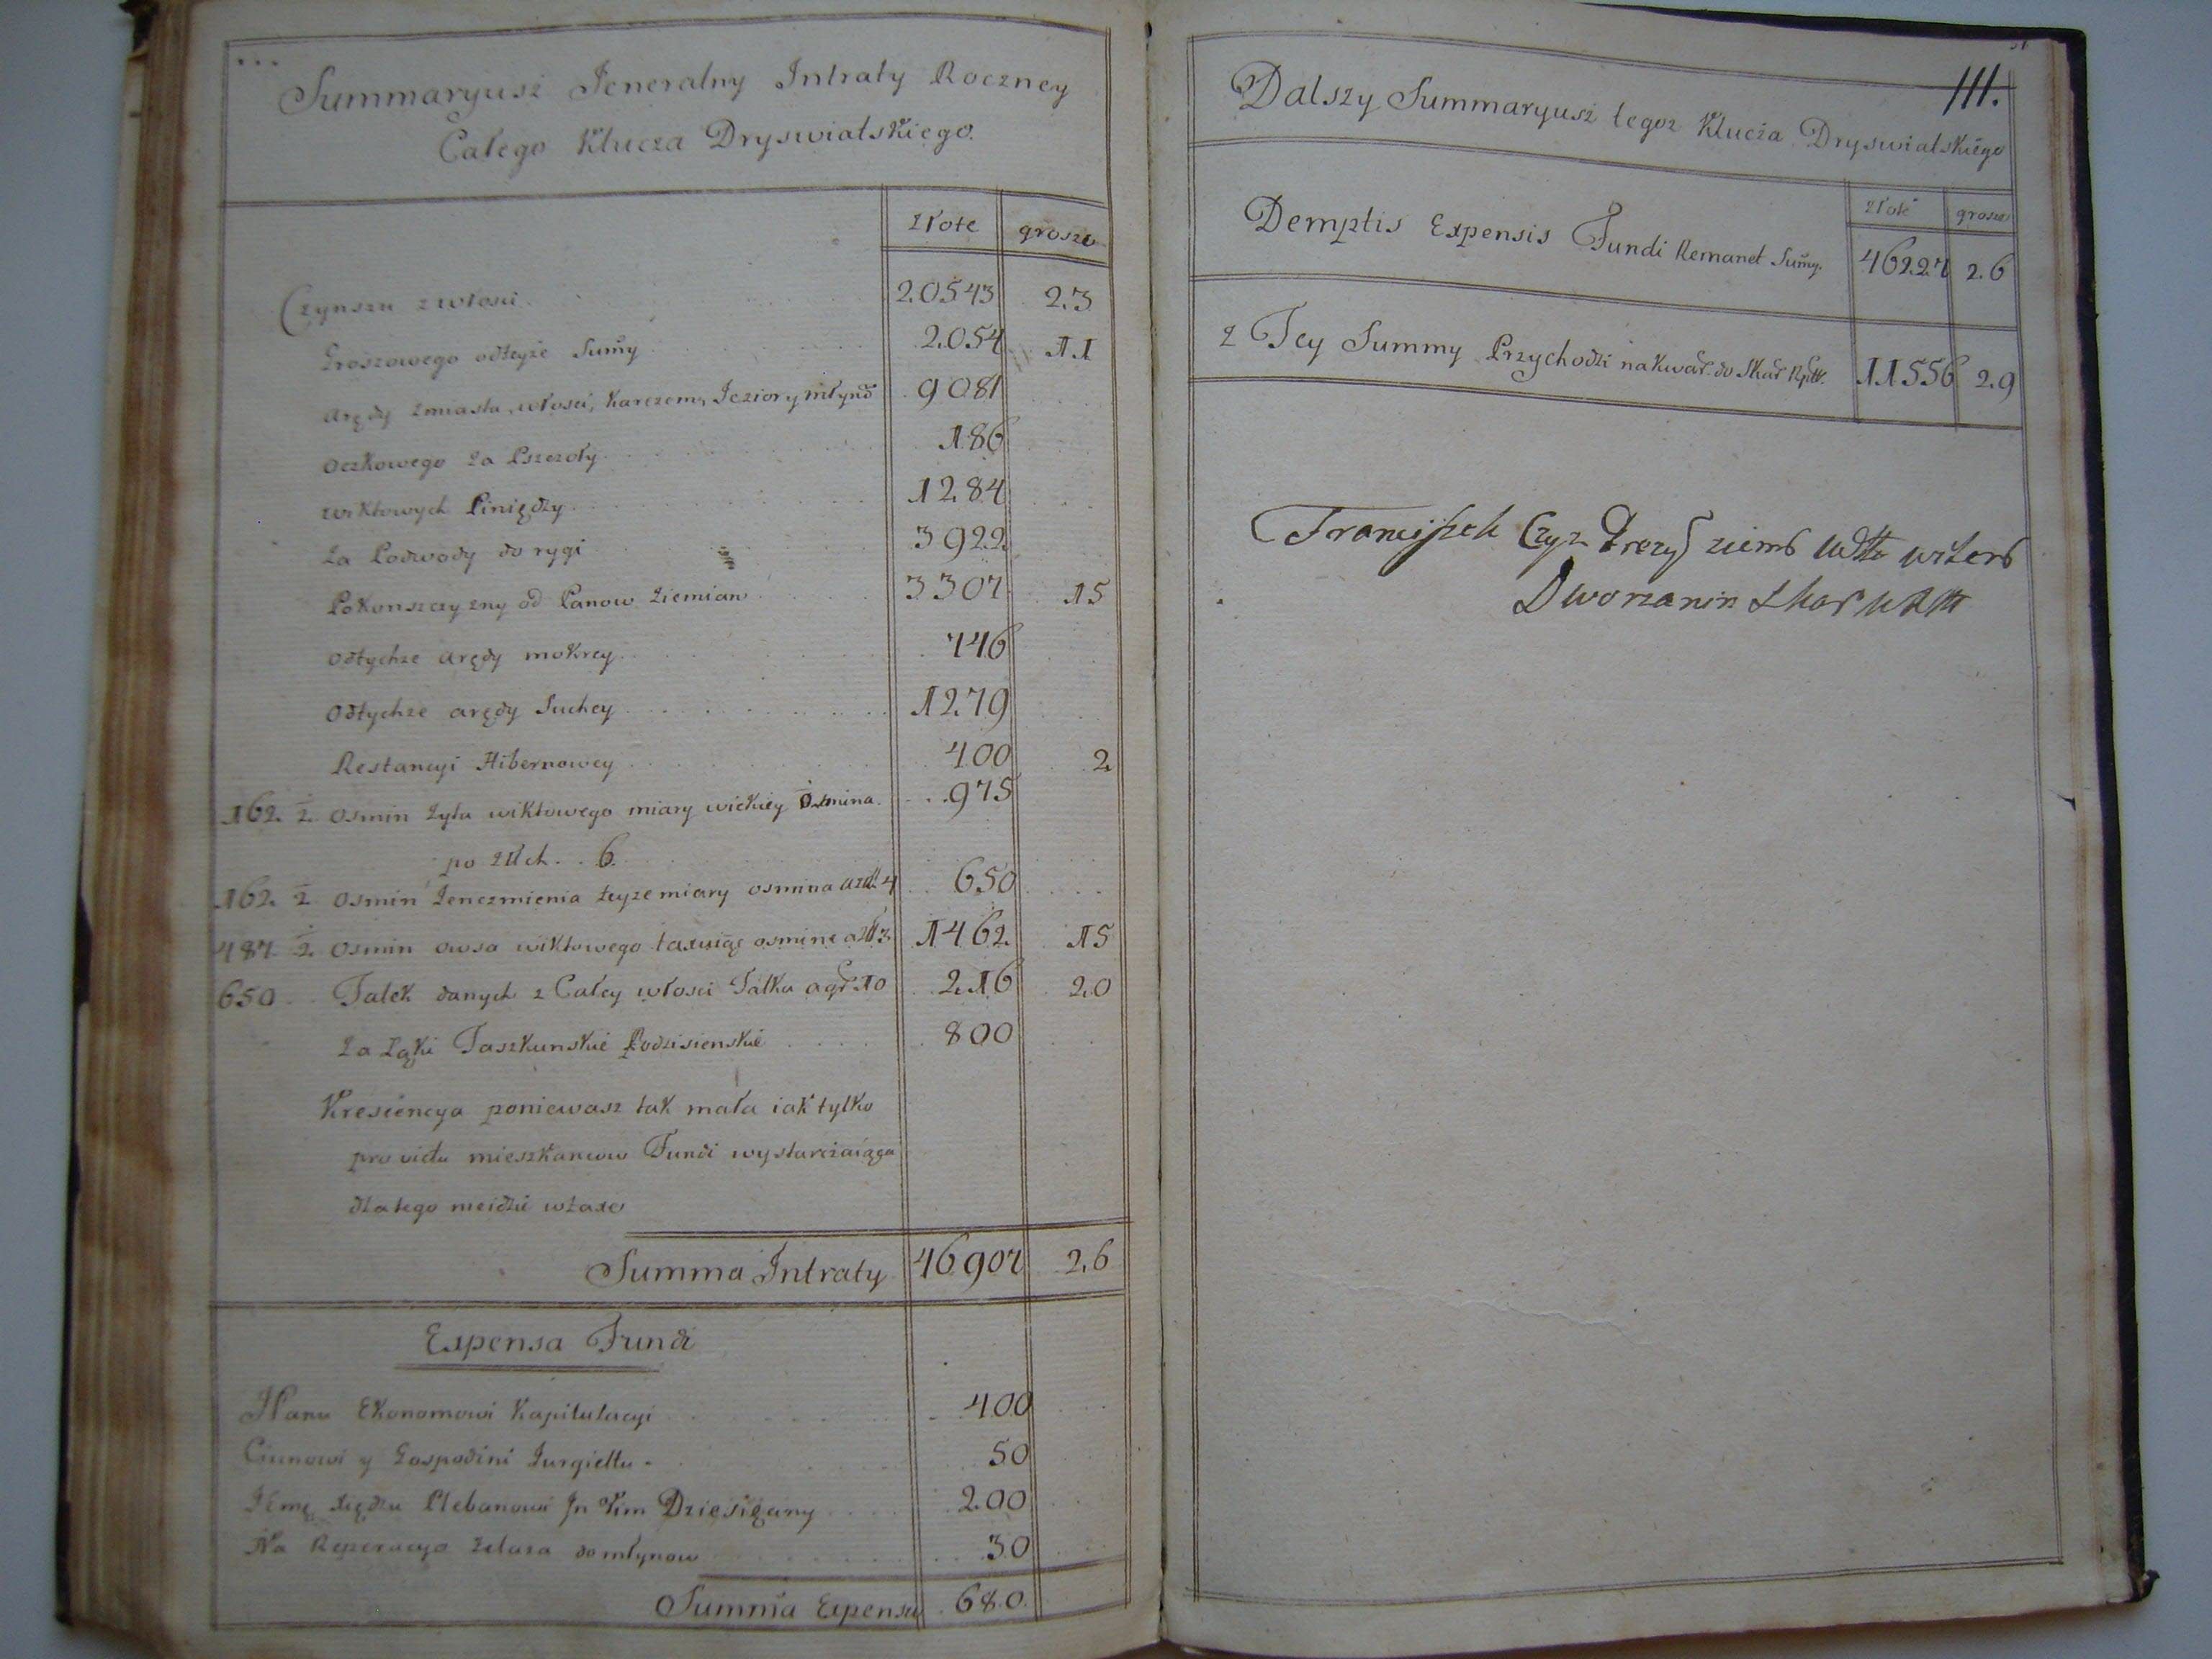 Summaryusz Jeneralny Intraty Roczney
Całego Klucza Dryswiatskiego.
złote grosze
Czynszu z włosci 20543 23
Groszowego odteyże Sumy 2054 11
Arędy zmiasta, włosci, karczem, Jezior y młynow 9081
Oczkowego za Pszczoły 186
wiktowych Piniędzy 1284
za Podwody do rygi 3922
Pokonszczyzny od Panow Ziemian 3307 15
odtychże arędy mokrey 746
Odtychże arędy Suchey 1279
Restancyi Hibernowey 400 2
162 1/2 osmin żyta wiktowego miary osmina 975
po złłch 6
162 1/2 osmin Jenczmienia teyże miary osmina a zł 4 650
487 1/2 osmin owsa wiktowego taxuiąc osminę a zł 3 1462 15
650 Talek danych z Całey włosci Talka a gř 10 216 20
za Łąki Taszkunskie Podzisienskie 800
Krescencya poniewasz tak mała iak tylko
pro victu mieszkancow Fundi wystarczaiąca
dlatego nieidzie wtaxę
Summa Intraty 46907 26
Expensa Fundi
JPanu Ekonomowi Kapitulacyi 400
Ciunowi y Gospodini Jurgieltu 50
Xiędzu Plebanowi In Vim Dziesięciny 200
Na Reperacyą żelaza do młynow 30
Summa Expensy 680
111.
Dalszy Summaryusz tegoz Klucza Dryswiatskiego
złote grosze
Demptis Expensis Fundi Remanet Sumy. 46227 26
z Tey Summy Przychodzi na kwař. do Skař Rptt. 11556 29
Franciszek Czyz
Dworzanin Skar